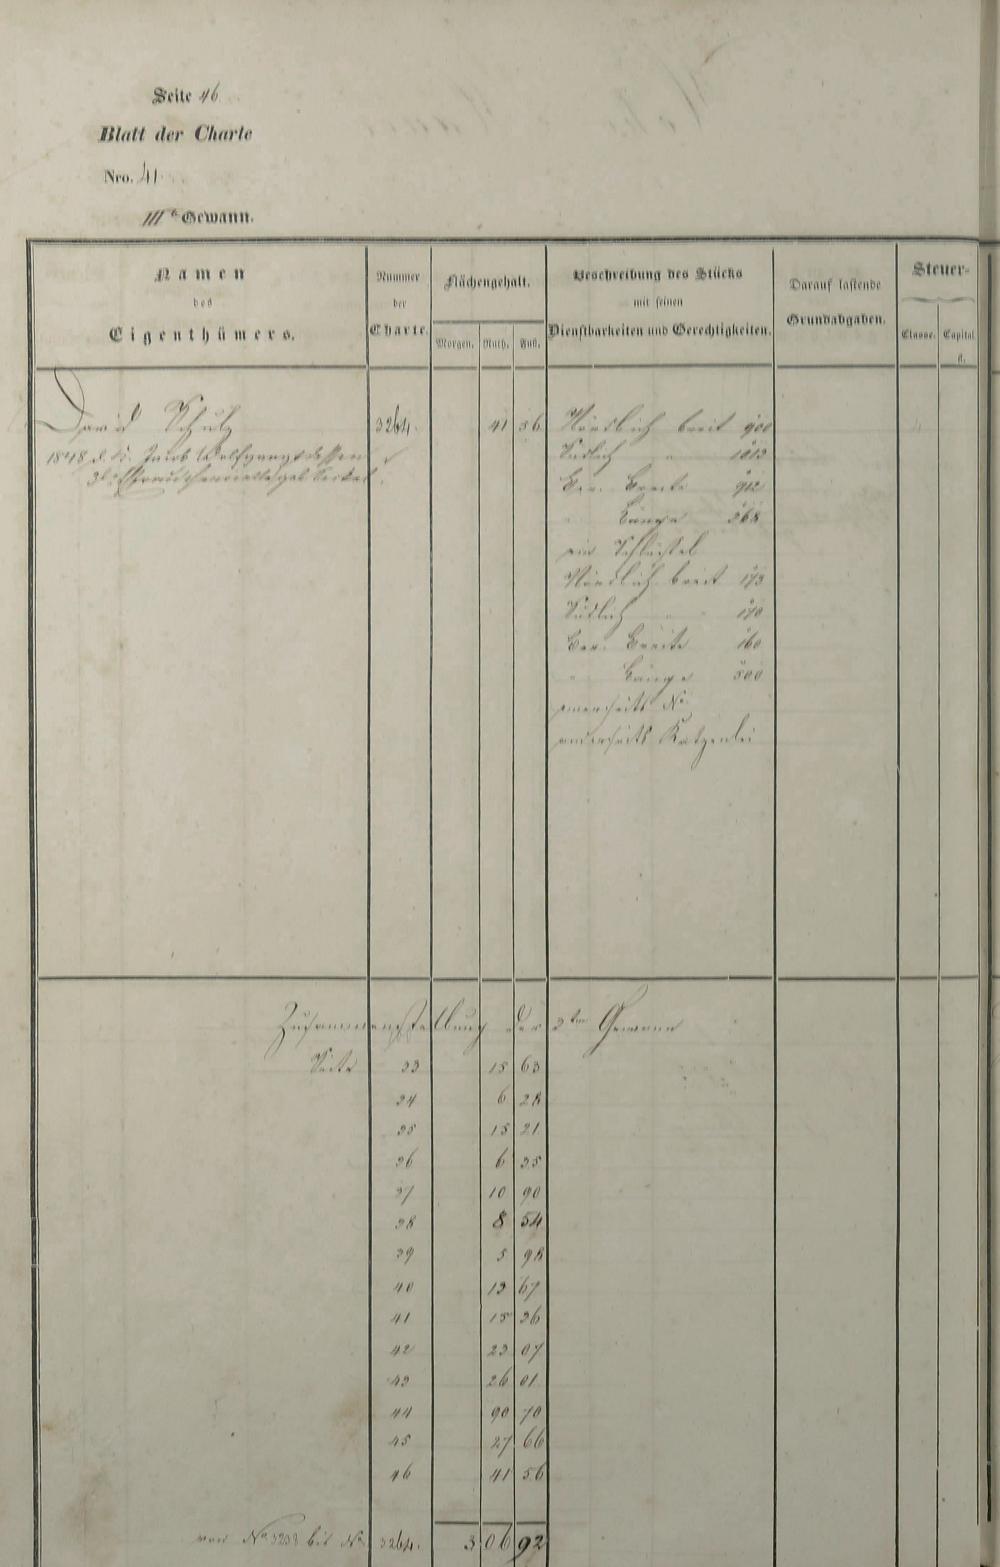 Seite 46
Blatt der Charte
Nro. 41
IIIte Gewann.
Namen des Eigenthümers.
Nummer der Charte.
Flächengehalt.
Morgen. Ruth. Fuß.
Beschreibung des Stücks mit seinen Dienstbarkeiten und Gerechtigkeiten.
Darauf lastende Grundabgaben.
Steuer-
Classe. Capital fl.
David Schulz 3264. 41 56 Nördlich breit 900
1848 d. Jacob Wolf
Südlich " 1013
Ber. Breite 912
" Länge 368
ein Schlüssel
Nördlich breit 173
Südlich " 170
Ber. Breite 160
" Länge 500
einerseits No.
anderseits Katzenlei
Zusammenstellung der 3ten Gewann
Seite 33 15 63
34 6 28
35 15 21
36 6 35
37 10 90
38 8 54
39 5 98
40 13 67
41 15 36
42 23 07
43 26 01
44 90 70
45 27 66
46 41 56
von No. bis No. 3264. 306 92